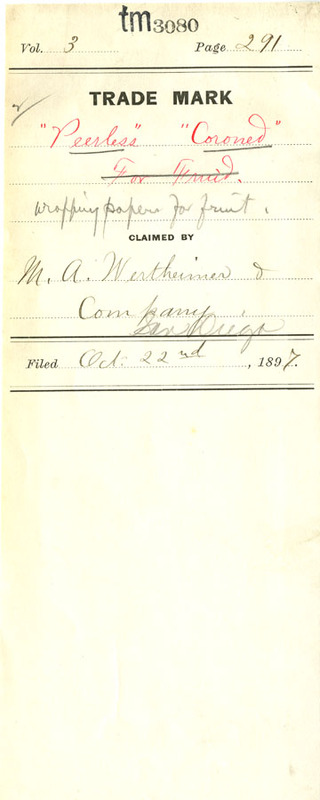 tm3080
Vol. 3 Page 291
TRADE MARK
"Peerless" "Coroned"
For Fruid.
wrapping papers for fruit.
CLAIMED BY
M. A. Wertheimer &
Company,
San Diego
Filed Oct. 22nd, 1897.